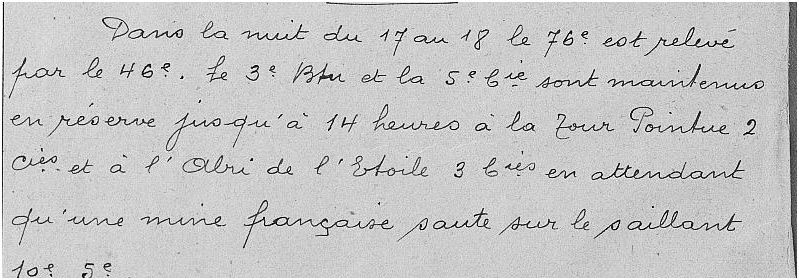 Dans la nuit du 17 au 18 le 76e est relevé
par le 46e. Le 3e Btn et la 5e Cie sont maintenus
en réserve jusqu'à 14 heures à la Tour Pointue 2
Cies et à l'Abri de l'Etoile 3 Cies en attendant
qu'une mine française saute sur le saillant
10e 5e